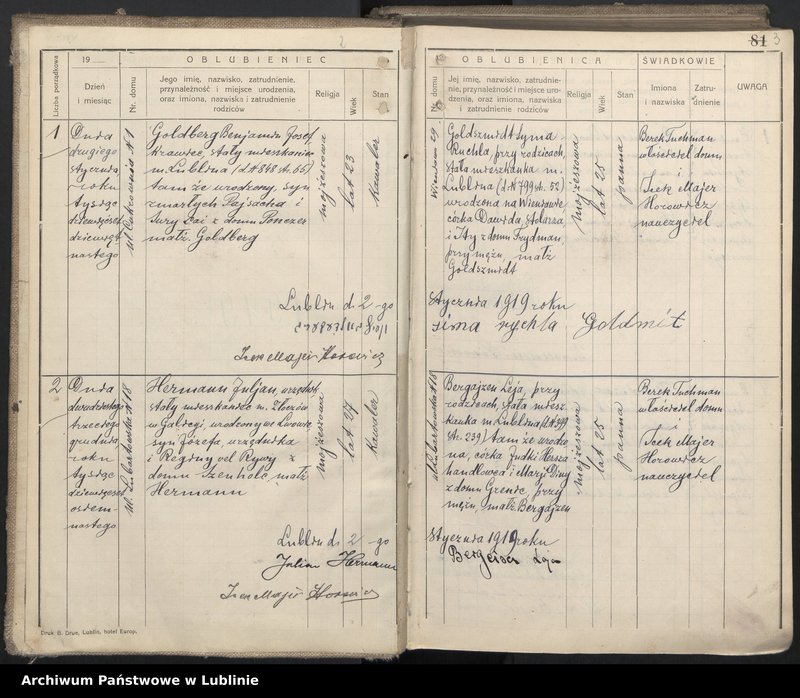 2
81 3
OBLUBIENIEC
Liczba porządkowa
19
Dzień
i miesiąc
Nr. domu
Jego imię, nazwisko, zatrudnienie,
przynależność i miejsce urodzenia,
oraz imiona, nazwiska i zatrudnienie
rodziców
Religja
Wiek
Stan
1
Dnia
drugiego
stycznia
roku
tysiąc
dziewięćset
dziewięt
nastego
ul. Cukrownia N 1
Goldberg Benjamin Josef
krawiec stały mieszkaniec
m. Lublina (d. N 848 st. 65)
tamże urodzony, syn
zmarłych Pajsacha i
Sury Fai z domu Ponczer
małż. Goldberg
mojżeszowa
lat 23
kawaler
Lublin d. 2-go
Icek Majer Horowicz
2
Dnia
dwudziestego
trzeciego
grudnia
roku
tysiąc
dziewięćset
ośiem-
nastego
ul. Lubartowska N 18
Hermann Juljan, urzędnik
stały mieszkaniec m. Złoczów
w Galicji, urodzony we Lwowie
syn Józefa, urzędnika
i Reginy vel Rywy z
domu Szenholc, małż
Hermann
mojżeszowa
lat 27
kawaler
Lublin d. 2-go
Julian Hermann
Icek Majer Horowicz
Druk B. Drue, Lublin, hotel Europ.
OBLUBIENICA
ŚWIADKOWIE
UWAGA
Nr. domu
Jej imię, nazwisko, zatrudnie-
nie, przynależność i miejsce uro-
dzenia, oraz imiona, nazwiska
i zatrudnienie rodziców
Religja
Wiek
Stan
Imiona
i nazwiska
Zatru-
dnienie
Wieniawa 29
Goldszmidt Syma-
Ruchla, przy rodzicach,
stała mieszkanka m.
Lublina (d. N 799 st. 52)
urodzona na Wieniawie
córka Dawida stolarza
i Ity z domu Frydman,
przy mężu, małż
Goldszmidt
mojżeszowa
lat 25
panna
Berek Tuchman
właściciel domu
i
Icek Majer
Horowicz
nauczyciel
stycznia 1919 roku
sima rychla Goldmit
ul. Lubartowska N 18
Bergajzen Leja, przy
rodzicach, stała miesz
kanka m. Lublina (d. N 399
str. 239) tamże urodzo
na, córka Judki Hersza
handlowca i Marji Diny
z domu Grenic, przy
mężu, małż. Bergajzen
mojżeszowa
lat 25
panna
Berek Tuchman
właściciel domu
i
Icek Majer
Horowicz
nauczyciel
stycznia 1919 roku
Bergeisen Leja
Archiwum Państwowe w Lublinie